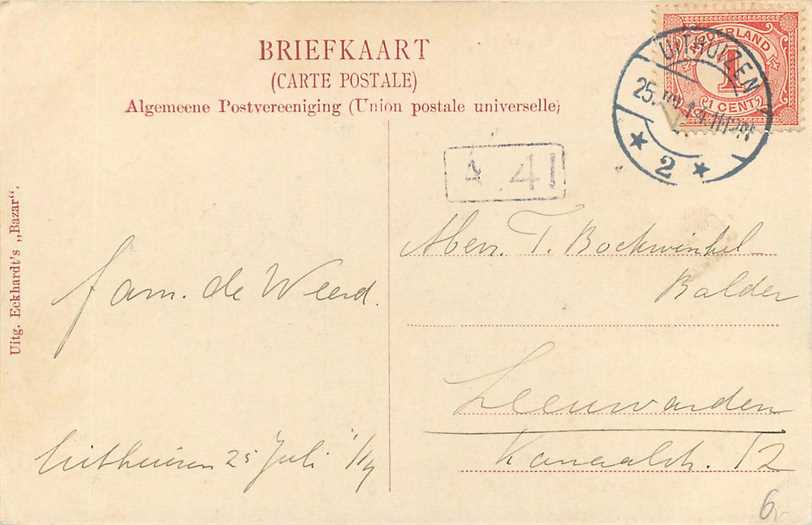 BRIEFKAART
(CARTE POSTALE)
Algemeene Postvereeniging (Union postale universelle)
NEDERLAND
1
(1 CENT)
UITHUIZEN
25. 14
* 2 *
4 41
Uitg. Eckhardt's „Bazar".
fam. de Weerd.
Uithuizen 25 Juli '14
T. Bockwinkel
Balder
Leeuwarden
Kanaalstr. 12
6